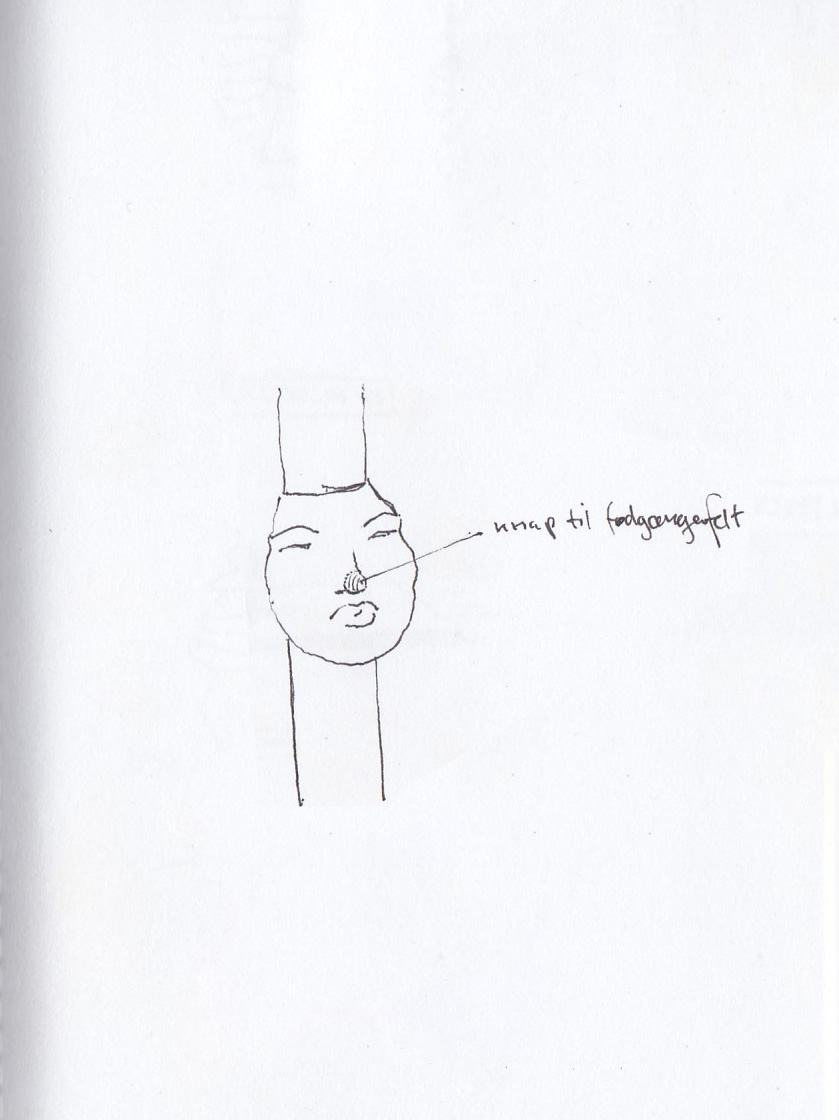 knap til fodgængerfelt